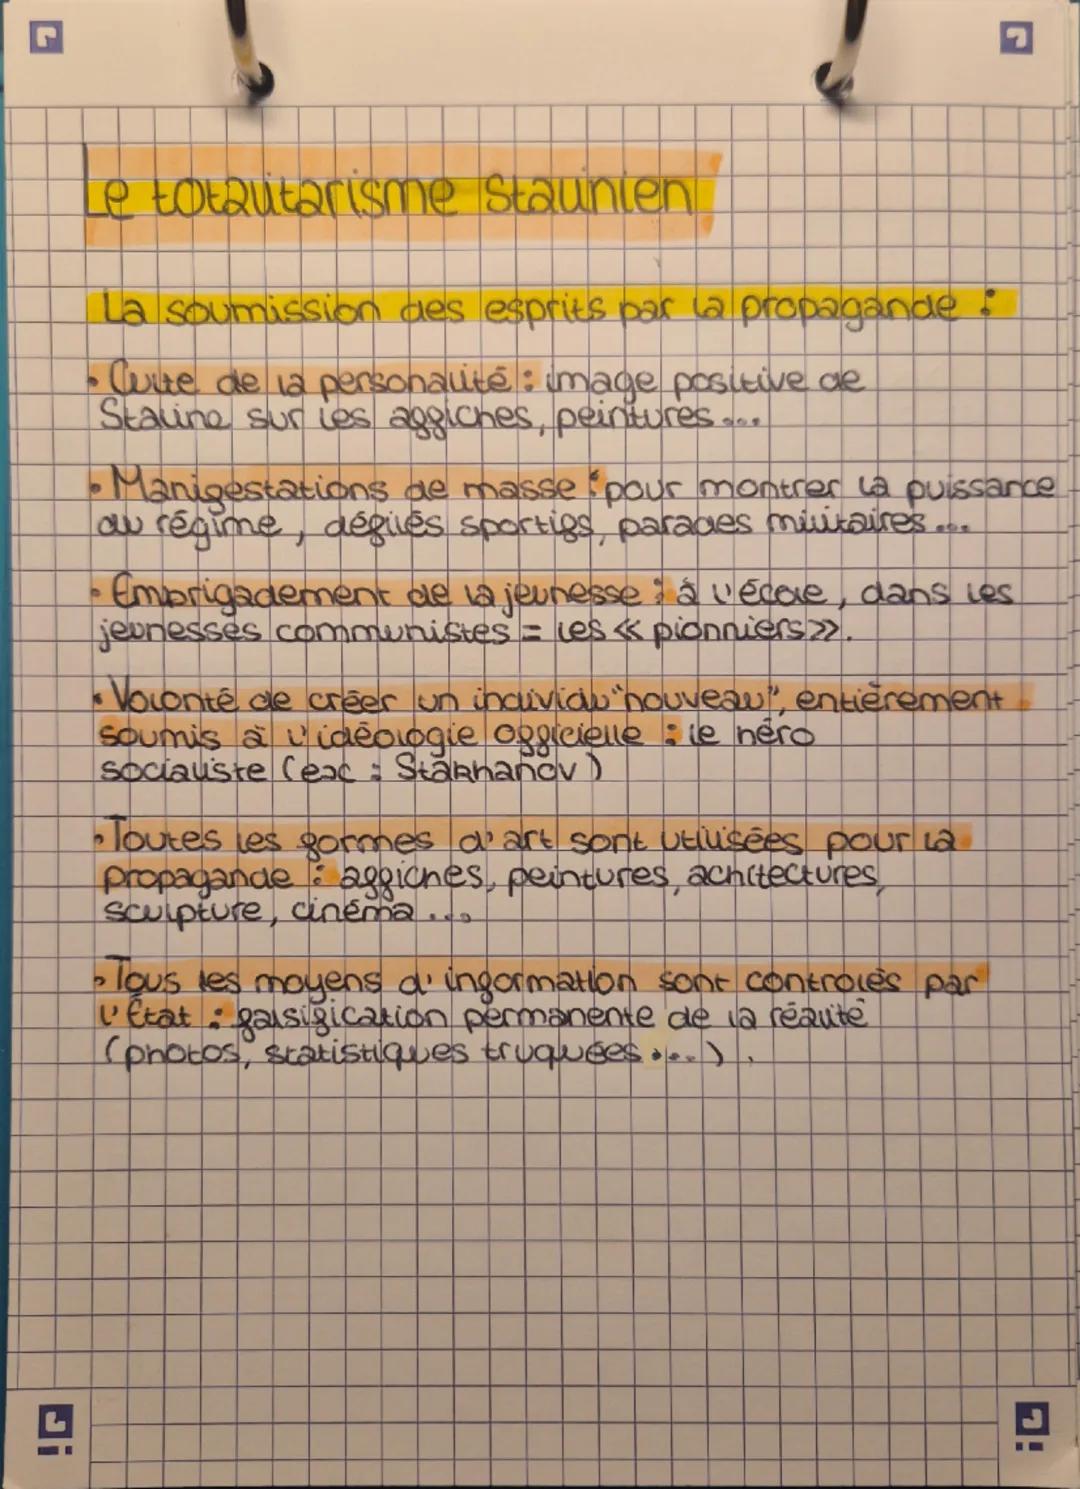 Le totalitarisme Stalinien
La soumission des esprits par la propagande :
• Culte de la personalité : image positive de
Staline sur les affiches, peintures ...
• Manifestations de masse : pour montrer la puissance
du régime, défilés sportifs, parades militaires ...
• Embrigadement de la jeunesse : à l'école, dans les
jeunesses communistes = les « pionniers ».
• Volonté de créer un individu "nouveau", entièrement
soumis à l'idéologie officielle : le héro
socialiste (ex : Stakhanov)
• Toutes les formes d'art sont utilisées pour la
propagande : affiches, peintures, achitectures,
sculpture, cinéma ...
• Tous les moyens d'information sont controlés par
l'État : falsification permanente de la réalité
(photos, statistiques truquées ...).